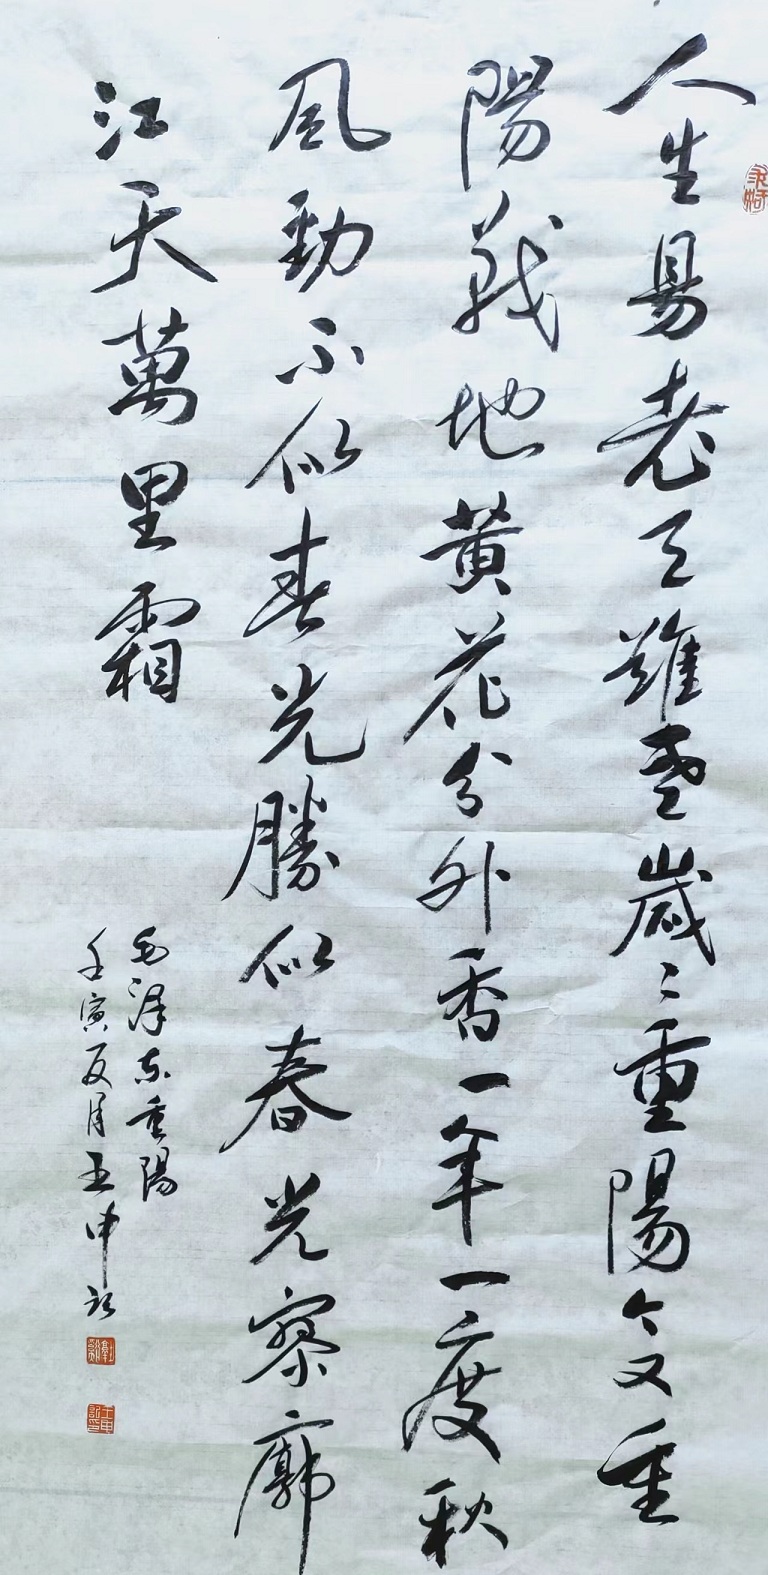 人生易老天難老歲々重陽今又重
陽戰地黄花分外香一年一度秋
風勁不似春光勝似春光寥廓
江天萬里霜
毛澤东重陽
壬寅夏月王申